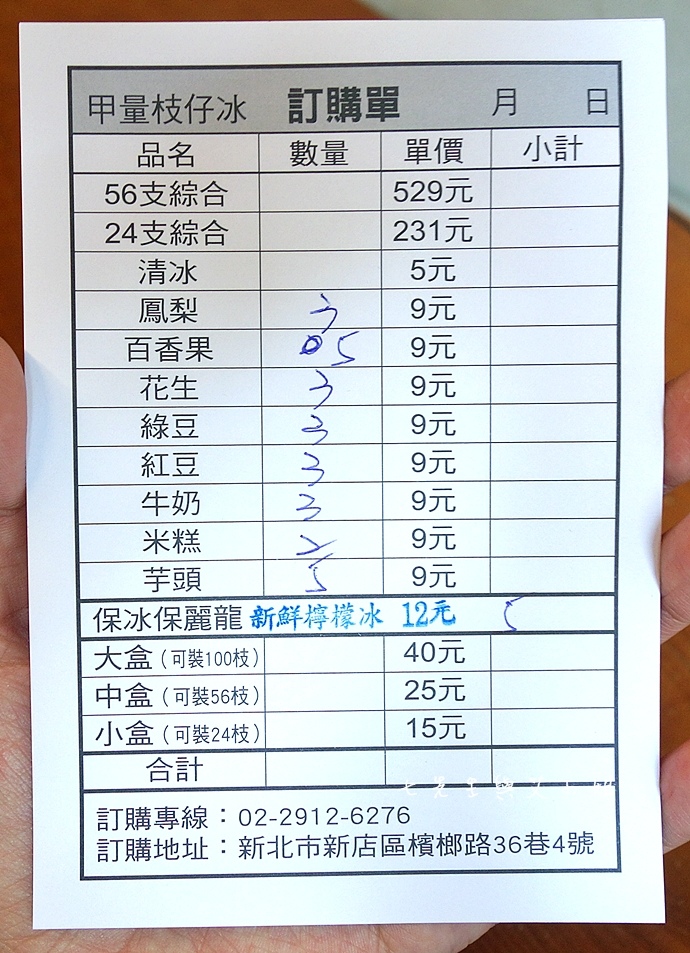 甲量枝仔冰 訂購單 月 日
品名 數量 單價 小計
56支綜合 529元
24支綜合 231元
清冰 5元
鳳梨 3 9元
百香果 5 9元
花生 3 9元
綠豆 3 9元
紅豆 3 9元
牛奶 3 9元
米糕 2 9元
芋頭 5 9元
保冰保麗龍 新鮮檸檬冰 12元 5
大盒(可裝100枝) 40元
中盒(可裝56枝) 25元
小盒(可裝24枝) 15元
合計
訂購專線：02-2912-6276
訂購地址：新北市新店區檳榔路36巷4號